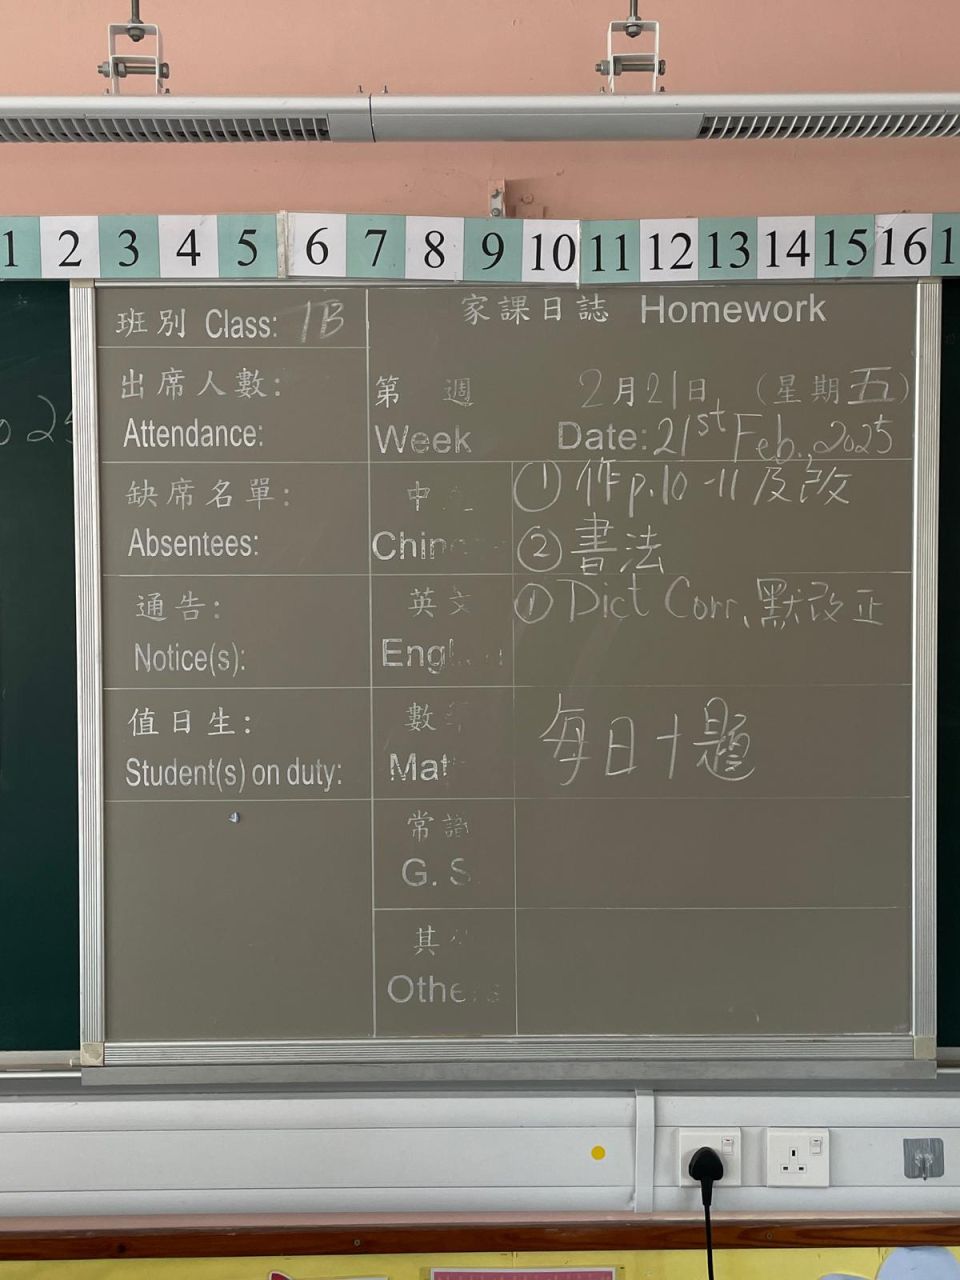 1 2 3 4 5 6 7 8 9 10 11 12 13 14 15 16 1
班別 Class: 1B
家課日誌 Homework
出席人數:
Attendance:
第 週 2月21日 (星期五)
Week Date: 21st Feb., 2025
025
缺席名單:
Absentees:
中
Chin
① 作p.10-11及改
② 書法
通告:
Notice(s):
英文
Engl
① Dict Corr、默改正
值日生:
Student(s) on duty:
數
Mat
每日十題
常識
G. S
其
Others